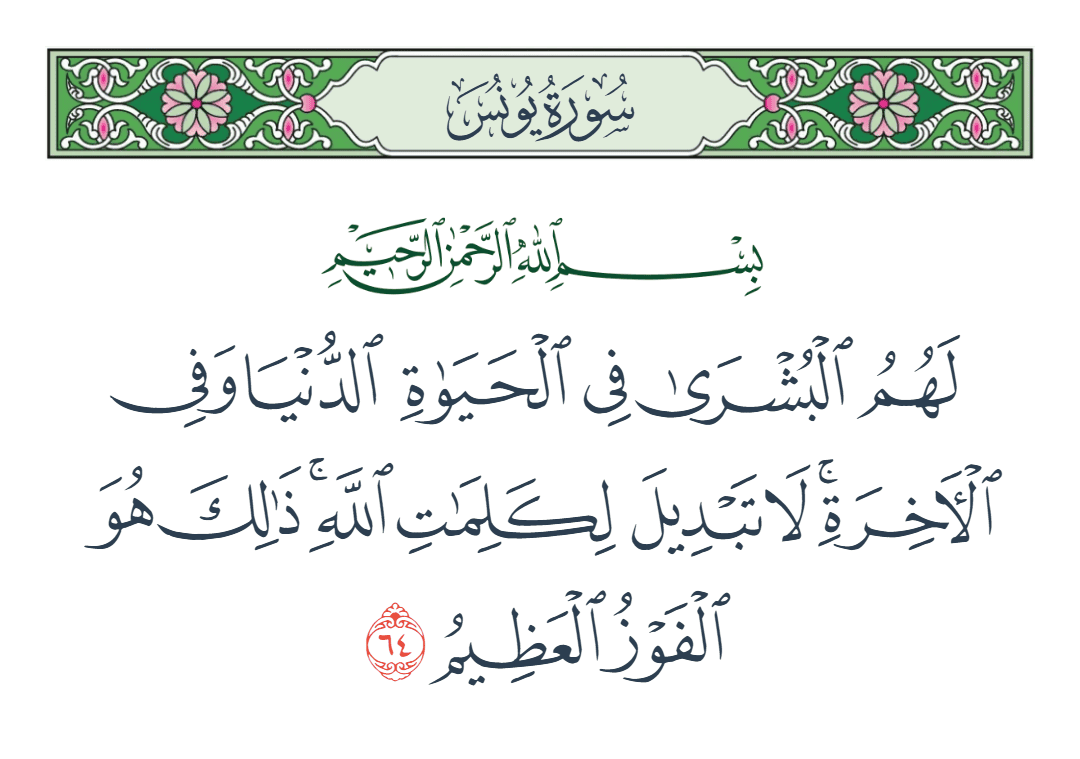 سُورَةُ يُونُسَ
بِسْمِ ٱللَّهِ ٱلرَّحْمَٰنِ ٱلرَّحِيمِ
لَهُمُ ٱلْبُشْرَىٰ فِى ٱلْحَيَوٰةِ ٱلدُّنْيَا وَفِى
ٱلْـَٔاخِرَةِ ۚ لَا تَبْدِيلَ لِكَلِمَٰتِ ٱللَّهِ ۚ ذَٰلِكَ هُوَ
ٱلْفَوْزُ ٱلْعَظِيمُ ٦٤